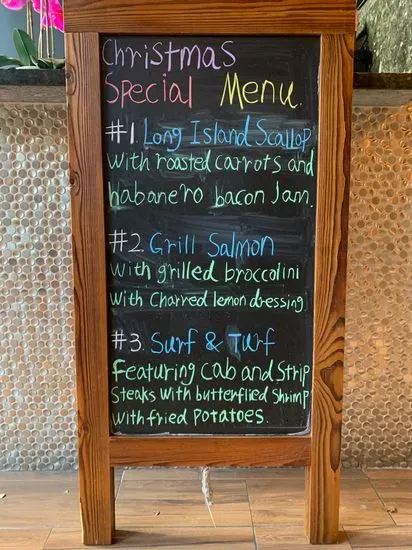 Christmas
Special Menu.
#1. Long Island Scallop
with roasted carrots and
habanero bacon Jam.
#2. Grill Salmon
with grilled broccolini
with Charred lemon dressing
#3. Surf & Turf
Featuring Cab and Strip
Steaks with butterflied Shrimp
with fried Potatoes.